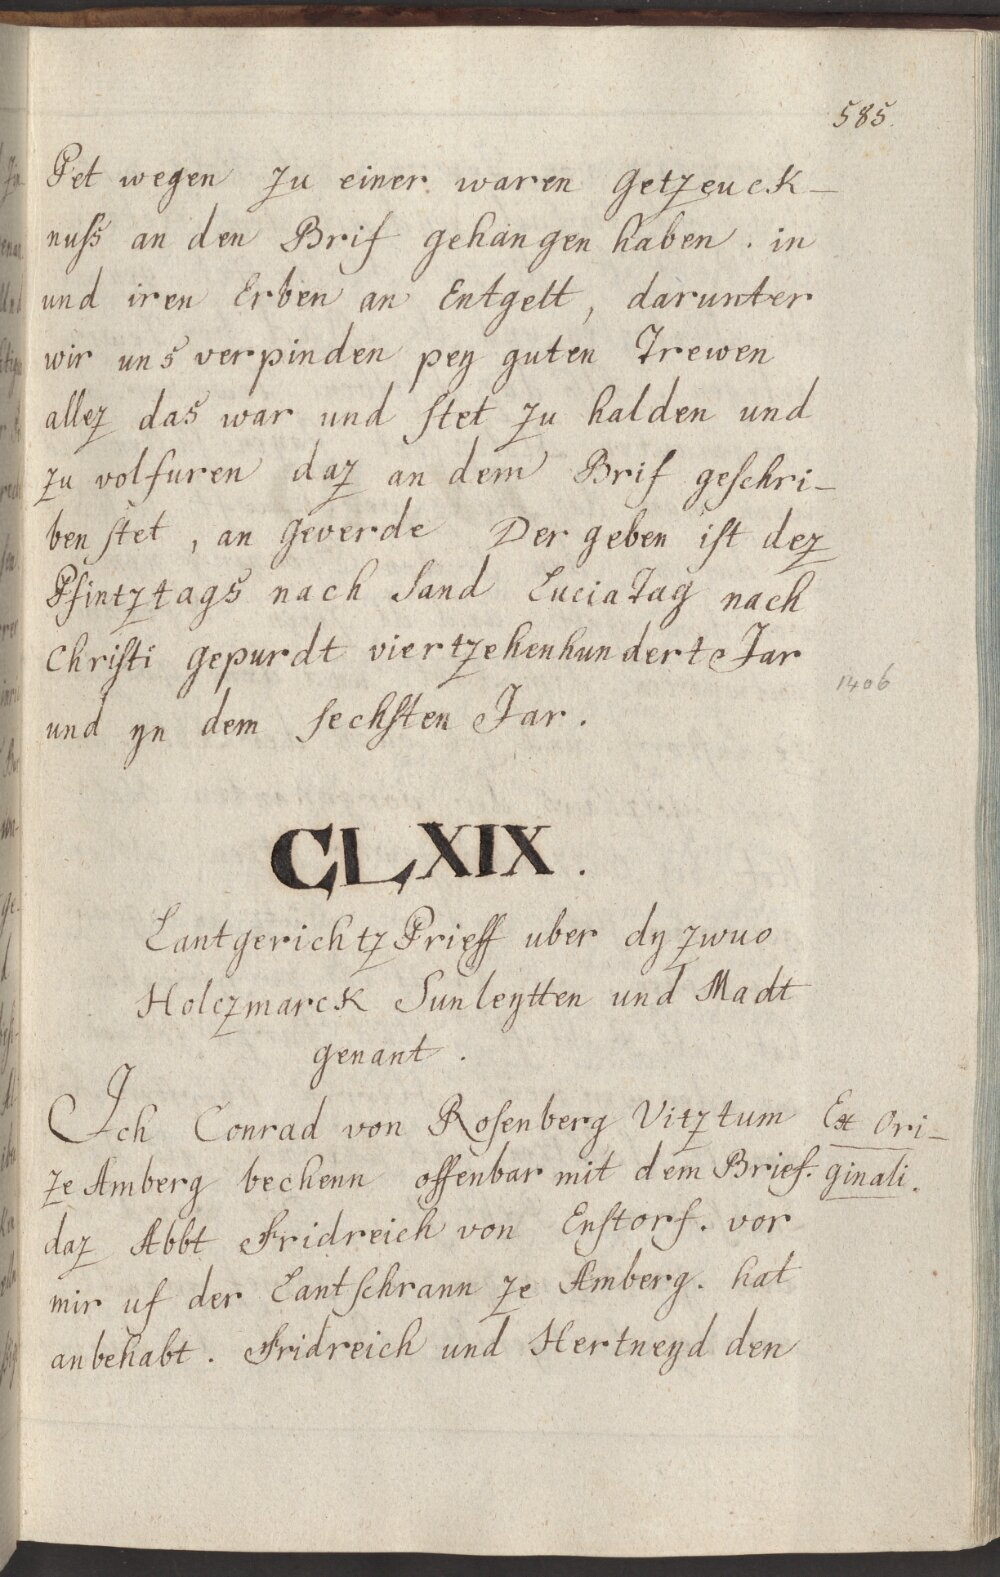 585.
Pet wegen zu einer waren Getzeuck-
nuſs an den Brif gehangen haben . in
und iren Erben an Entgelt , darunter
wir uns verpinden pey guten Trewen
allez das war und ſtet zu halden und
zu volfuren daz an dem Brif geſchri-
ben ſtet , an geverde Der geben iſt dez
Pfintztags nach Sand Lucia Tag nach
Chriſti gepurdt viertzehenhundert Jar
1406
und yn dem ſechſten Jar .
CLXIX .
Lantgerichtz Prieff uber dy zwuo
Holczmarck Sunleytten und Madt
genant .
Ich Conrad von Roſenberg Vitztum
Ex Ori-
ze Amberg bechenn offenbar mit dem Brief .
ginali .
daz Abbt Fridreich von Enſtorf . vor
mir uf der Lantſchrann ze Amberg . hat
anbehabt . Fridreich und Hertneyd den